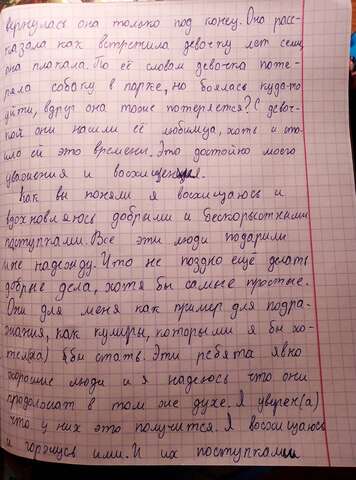 вернулась она только под конец. Она расс-
казала как встретила девочку лет семи,
она плакала. По её словам девочка поте-
ряла собаку в парке, но боялась куда-то
уйти, вдруг она тоже потеряется? С девоч-
кой они нашли её любимца, хоть и сто-
ило ей это времени. Это достойно моего
уважения и восхищения.
Как вы поняли я восхищаюсь и
вдохновляюсь добрыми и бескорыстными
поступками. Все эти люди подарили
мне надежду. Что не поздно ещё делать
добрые дела, хотя бы самые простые.
Они для меня как пример для подра-
жания, как кумиры, которыми я бы хо-
тел(ла) бы стать. Эти ребята явно
хорошие люди и я надеюсь что они
продолжат в том же духе. Я уверен(а)
что у них это получится. Я восхищаюсь
и горжусь ими. И их поступками